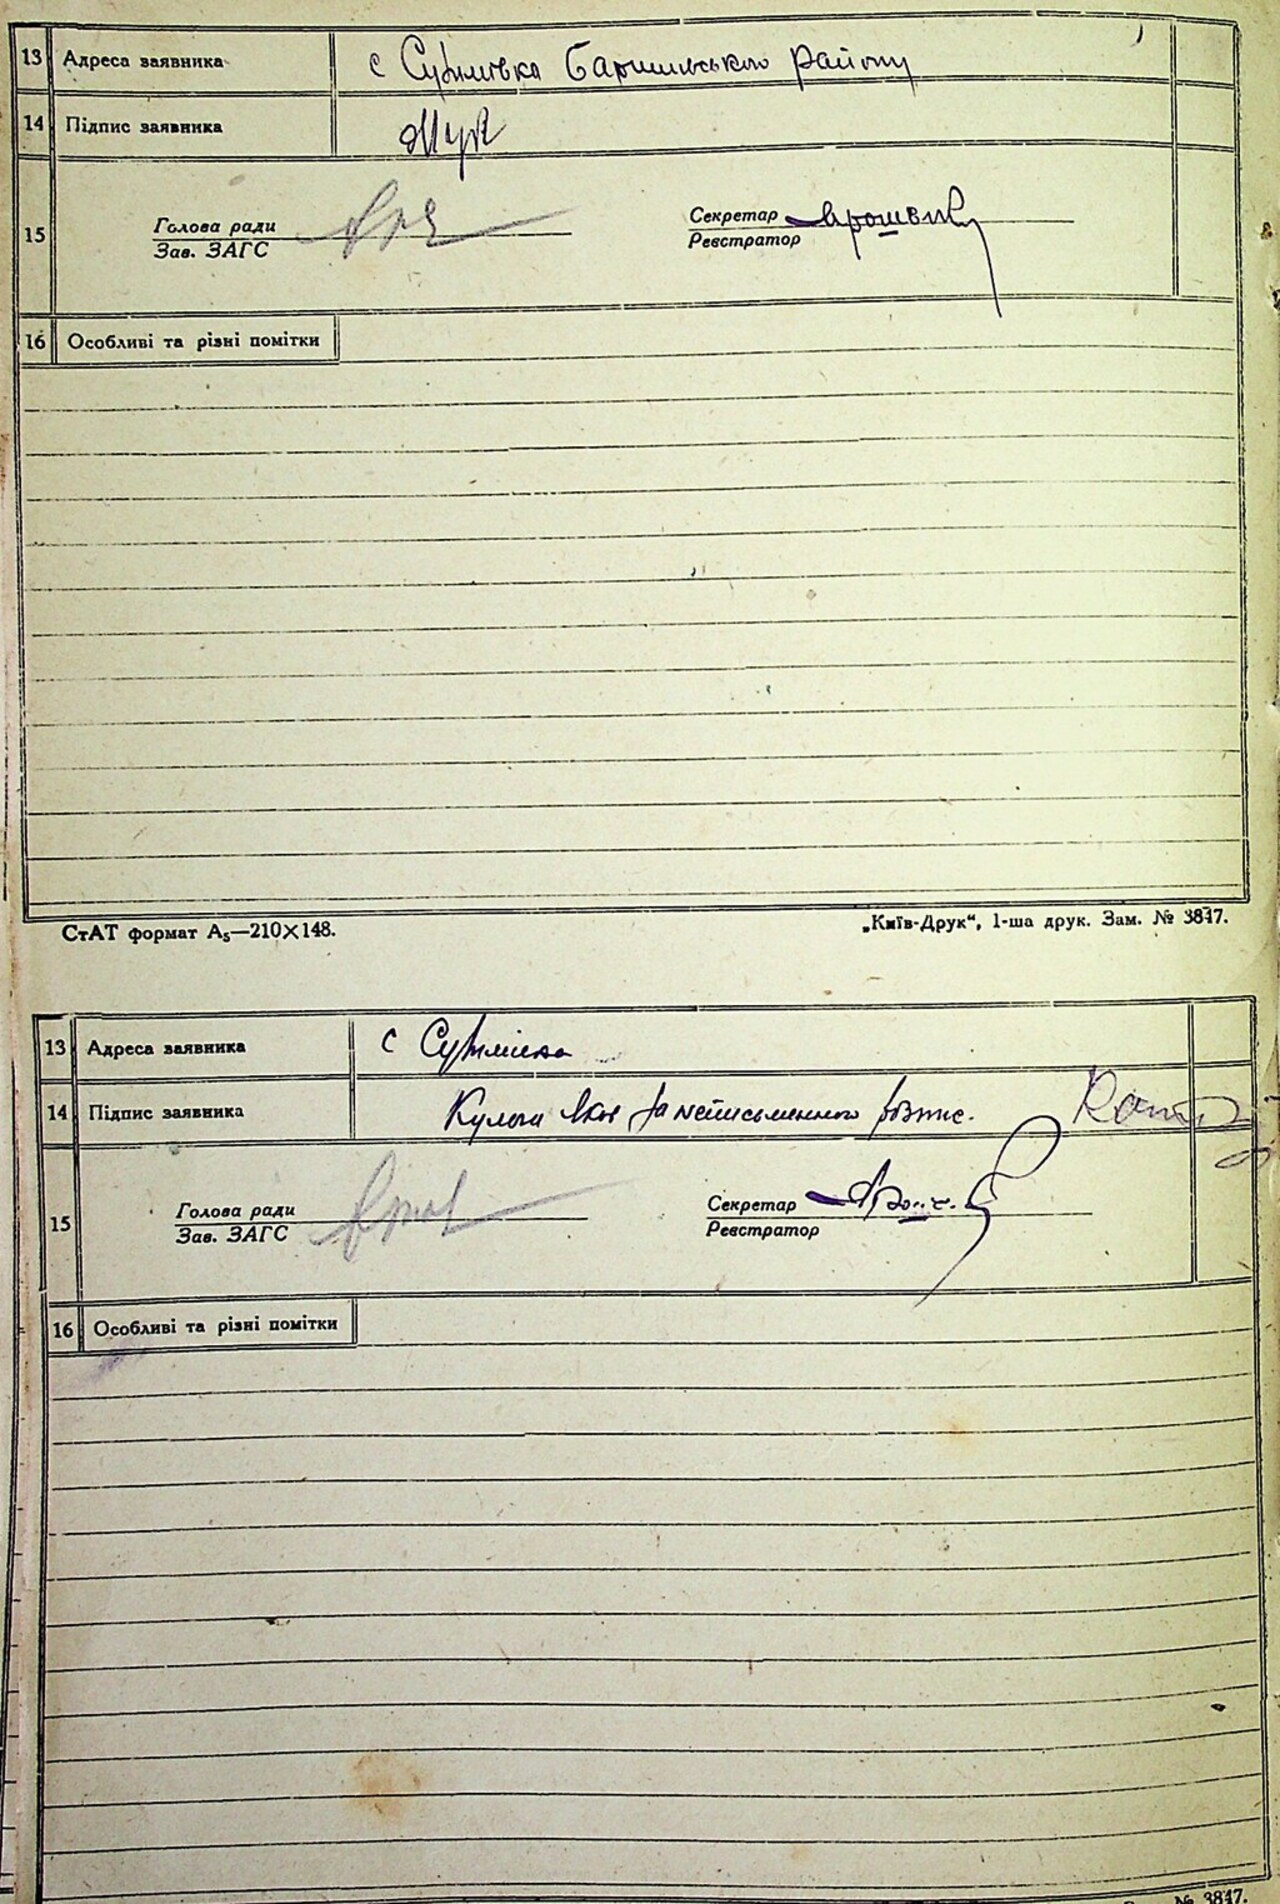 13 Адреса заявника с Сулимівка Баришівського району
14 Підпис заявника Жук
15 Голова ради Секретар
Зав. ЗАГС Реєстратор
16 Особливі та різні помітки
СтАТ формат А₅—210×148. „Київ-Друк“, 1-ша друк. Зам. № 3847.
13 Адреса заявника с Сулимівка
14 Підпис заявника за неписьменного розпис.
15 Голова ради Секретар
Зав. ЗАГС Реєстратор
16 Особливі та різні помітки
№ 3847.